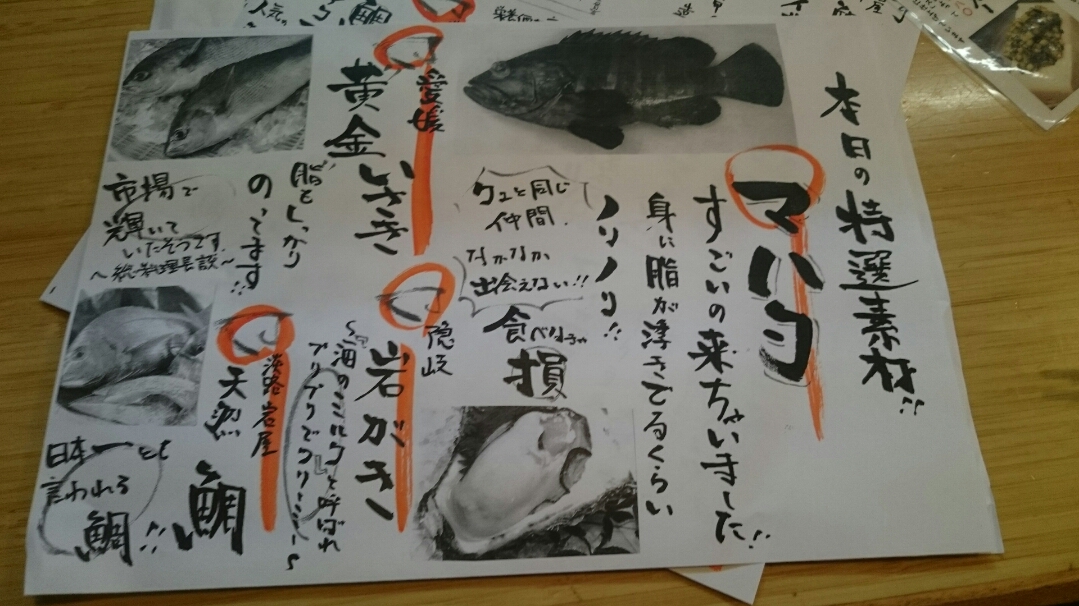 本日の特選素材!!
マハタ
すごいの来ちゃいました!!
身に脂が浮きてるくらい
ノリノリ!!
クエと同じ
仲間.
なかなか
出会えない!!
食べなきゃ
損
愛媛
黄金いさき
脂しっかり
のってます!!
市場で
輝いて
いたそうです.
～総料理長談～
隠岐
岩がき
～"海のミルク"と呼ばれ
プリプリでクリーミー～
淡路岩屋
天然
鯛
日本一とも
言われる
鯛!!